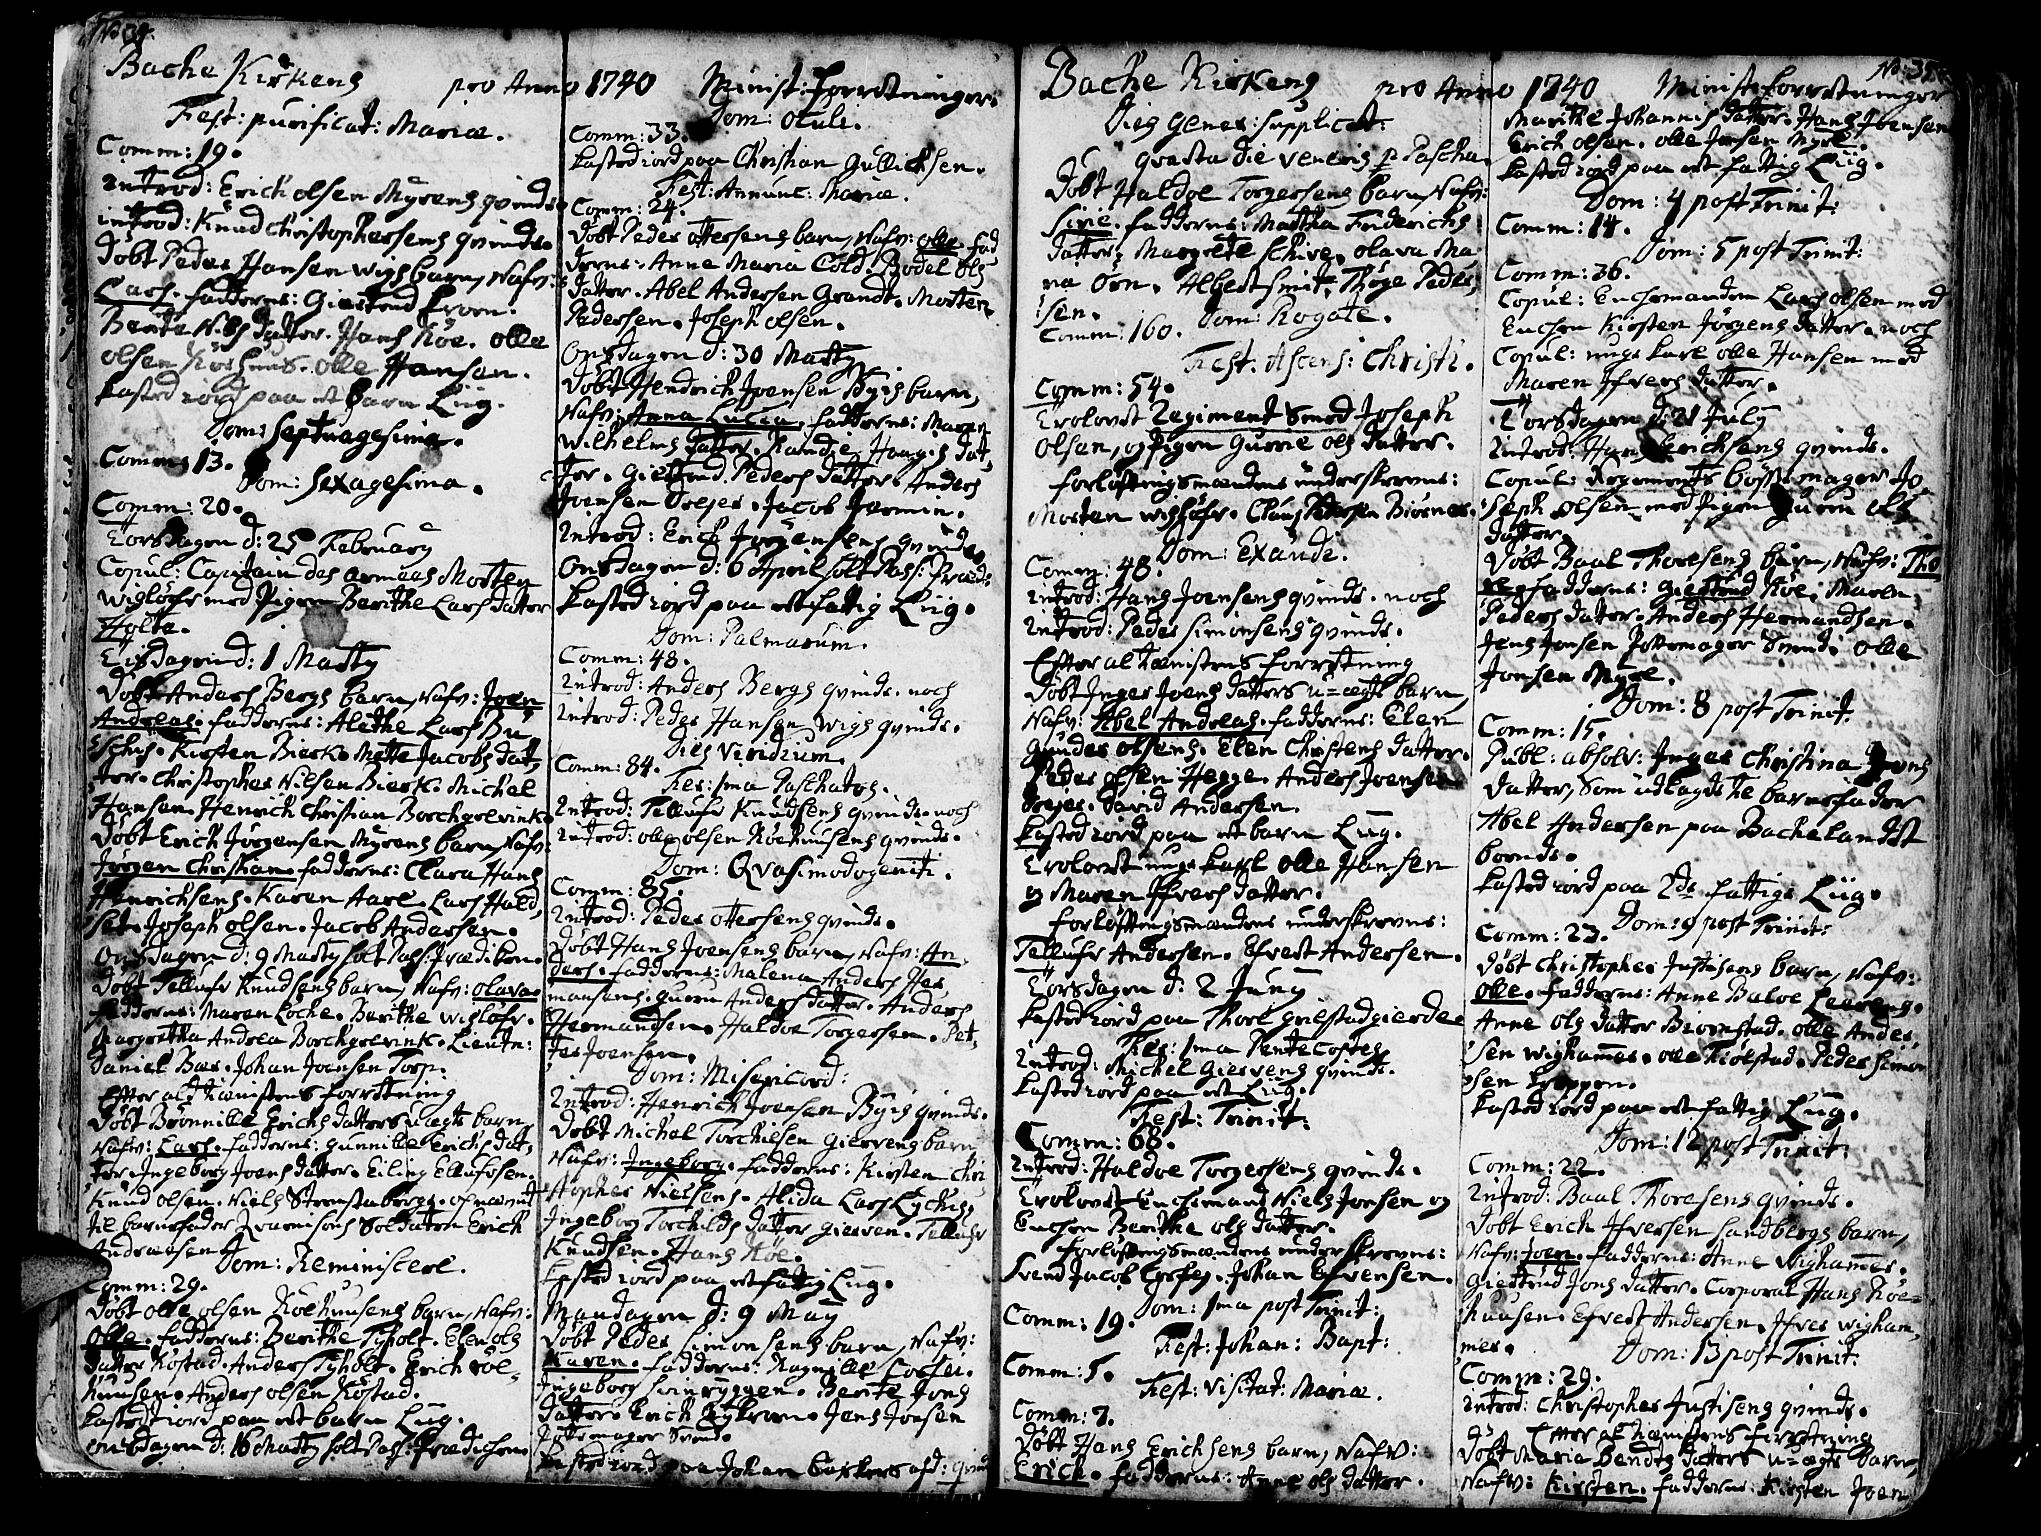 No 34.
Bache Kirkens pro Anno 1740 Minist: forretninger
Fest: purificat: Mariæ.
Comm: 19.
Introd: Erich olsen Myrens qvinde
introd: Knud Christophersens qvinde.
Døbt Peder Hansen Wigs barn, Nafv:
Lars. fadderne: Giertrud
Berite Nils datter. Hans Røe. olle
olsen Røehuus. olle Hansen.
Kasted iord paa et barn Liig.
Dom: Septuagesima.
Comm: 13.
Dom: Sexagesima.
Comm: 20.
Torsdagen d: 25 February
Copul: Capitain des armees Morten
Wigløfr med Pigen Berithe Lars datter
Holte.
Tisdagen d: 1 Marty
Døbt Anders Bergs barn, Nafv: Joen
Andreas. fadderne: Alethe Lars Bu,
schis. Kirsten Bierk. Mette Jacobs dat,
ter. Christopher Nilsen Bierk. Michel
Hansen. Henrich Christian Borchgrevink.
Døbt Erich Jørgensen Myrens barn, Nafv:
Jørgen Christian. fadderne: Clara Hans
Henrichsens. Karen Aare. Lars Hald,
set. Joseph olsen. Jacob Andersen.
Onsdagen d: 9 Marty holt Pass: Prædiken.
Døbt Tellufr Knudsens barn, Nafv: olava.
fadderne: Maren Locke. Berithe Wigløfr.
Margretha Andrea Borchgrevink. Lieutn:
Daniel Bær. Johan Joensen Torp.
Efter al tienistens forretning
Døbt Brønnille Erichs datters uægte barn
Nafv: Lars. fadderne: gunnilde Erichs dat,
ter. Ingeborg Joens datter. Eiling Ellufsen.
Knud olsen. Niels Steenstaberg. opnævnt
te barnefader Qvarnisons Soldaten Erich
Andræsen.
Dom: Reminiscere.
Comm: 29.
Døbt olle olsen Røehuusens barn, Nafv:
Olle. fadderne: Berithe Tyholt. Elen ols
datter Rostad. Anders Tyholt. Erich Røe,
huusen. Anders olsen Rostad.
Kasted iord paa et barn Liig.
onsdagen d: 16 Marty holt Pass: Prædichen.
Dom: Oculi.
Comm: 33.
Kasted iord paa Christian Gullichsen.
Fest: Annunc: Mariæ.
Comm: 24.
Døbt Peder ottersens barn, Nafv: olle. fad
derne: Anne Maria Cold. Bodel ols
datter. Abel Andersen Grandt. Morten
Pedersen. Joseph olsen.
Onsdagen d: 30 Marty.
Døbt Hendrich Joensen Byes barn,
Nafv: Anna Lucia. fadderne: Maren
Wilhelms datter. Randie Haagis dat,
ter. Giertrud Peders datter. Anders
Joensen Dreyer. Jacob Jermin.
Introd: Erich Jørgensens qvinde.
Onsdagen d: 6 April holt Pass: Præd:
Kasted iord paa et fattig Liig.
Dom: Palmarum.
Comm: 48.
Introd: Anders Bergs qvinde. noch
Introd: Peder Hansen Wigs qvinde.
Dies Viridium.
Comm: 84.
Fer: 1ma Paschatos.
Introd: Tellufr Knudsens qvinde. noch
Introd: olle olsen Røehuusens qvinde.
Dom: Qvasimodogeniti.
Comm: 85.
Introd: Peder ottersens qvinde.
Døbt Hans Joensens barn, Nafv: An,
ders. fadderne: Malena Anders Her,
mansens. Guru Anders datter. Anders
Hermandsen. Haldoe Torgersen. Pet,
ter Joensen.
Dom: Misericord:
Introd: Henrich Joensen Byes qvinde.
Døbt Michel Torchilsen Giervens barn
Nafv: Ingeborg. fadderne: Kirsten Chri
stopher Nielsens. Alida Lars Lychis,
Ingeborg Torchilds datter Gierven. Tellufr
Knudsen. Hans Røe.
Kasted iord paa et fattig Liig.
Mandagen d: 9 May
Døbt Peder Simonsens barn, Nafv:
Karen. fadderne: Ragnille Corsei.
Ingeborg Svinryggen. Berite Jons
datter. Erich Nykroen. Jens Joensen
Pottemager Svend.
Kasted iord paa Johan afd: qvinde
No: 35.
Bache Kirkens pro Anno 1740 Minist: forretninger
Dies Gener: Supplicat:
qvarta die Veneris p Pascha.
Døbt Haldoe Torgersens barn, Nafv:
Sirie. fadderne: Martha Friderichs
datter, Margrete Schive. olava Ma
ria Örn. Albert Smit. Thøge Peder,
sen.
Dom: Rogate.
Comm: 160.
Fest: Ascens: Christi.
Comm: 54.
Trolovet Regiment Smed Joseph
Olsen, og Pigen Gurrie ols datter.
forløftningsmændene underskrevne:
Morten Wigløfr. Claus Petersen Biørnes.
Dom: Exaudi.
Comm: 48.
Introd: Hans Joensens qvinde. noch
introd: Peder Simonsens qvinde.
Efter al tienistens forretning
Døbt Inger Joens datters u=ægte barn,
Nafv: Abel Andreas. fadderne: Elen
Gunder olsens. Elen Christens datter.
Peder olsen Hegge. Anders Joensen
Dreier. David Andersen.
Kasted iord paa et barn Liig.
Trolovet unge karl olle Hansen
og Maren Ifvers datter.
forløftningsmændene underskrevne:
Tellufr Andersen. Efvert Andersen.
Torsdagen d: 2 Juny
Kasted iord paa Thore grilstadgierdee
Fer: 1ma Pentecostes
introd: Michel Giervens qvinde.
Kasted iord paa et Liig.
Fest: Trinit:
Comm: 68.
Introd: Haldoe Torgersens qvinde.
Trolovet Enchemand Niels Jonsen og
Enchen Berithe ols datter.
forløftningsmændene underskrevne:
Svend Jacob Johan Efvensen.
Dom: 1ma post Trinit:
Comm: 19.
Fest: Johan: Bapt:
Comm: 5.
Fest: Visitat: Mariæ.
Comm: 7.
Døbt Hans Erichsens barn, Nafv:
Erich. fadderne: Anne ols datter.
Marithe Johannis datter. Hans Joensen
Erich olsen. olle Jonsen Myre.
Kasted iord paa et fattig Liig.
Dom: 4 post Trinit:
Comm: 14.
Dom: 5 post Trinit:
Comm: 36.
Copul: Enchemanden Lars olsen med
Enchen Kirsten Jørgens datter. noch
Copul: unge karl olle Hansen med
Maren Ifvers datter.
Torsdagen d: 21 July
Introd: Hans Erichsens qvinde.
Copul: Regiments bøssemager Jo,
seph olsen med Pigen Guru ols
datter.
Døbt Baal Thoresens barn, Nafv: Tho
re. fadderne: Giertrud Røe. Maren
Peders datter. Anders Hermandsen.
Jens Jonsen Pottemager Svend. olle
Jonsen Myre.
Dom: 8 post Trinit:
Comm: 15.
Publ: absolv: Inger Christina Jons
datter, som udlagde til barnefader
Abel Andersen paa Bachelandet
boende.
Kasted iord paa 2de fattige Liig.
Dom: 9 post Trinit:
Comm: 23.
Døbt Christopher Justisens barn, Nafv:
Olle. fadderne: Anne Baloe Leereng.
Anne ols datter Biørnstad. olle Ander,
sen Wighammer. olle Kiølstad. Peder Simon
sen Kroppen.
Kasted iord paa et fattig Liig.
Dom: 12 post Trinit:
Comm: 22.
Introd: Baal Thoresens qvinde.
Døbt Erich Ifversen Sandbergs barn,
Nafv: Joen. fadderne: Anne Wighammer.
Giertrud Jons datter. Corporal Hans Røe=
huusen. Efvert Andersen. Ifver Wigham,
mer.
Dom: 13 post Trinit:
Comm: 29.
introd: Christopher Justisens qvinde.
Efter al tienistens forretning
Døbt Maria Bendts datters u=ægte barn,
Nafv: Kirsten. fadderne: Kirsten Joen